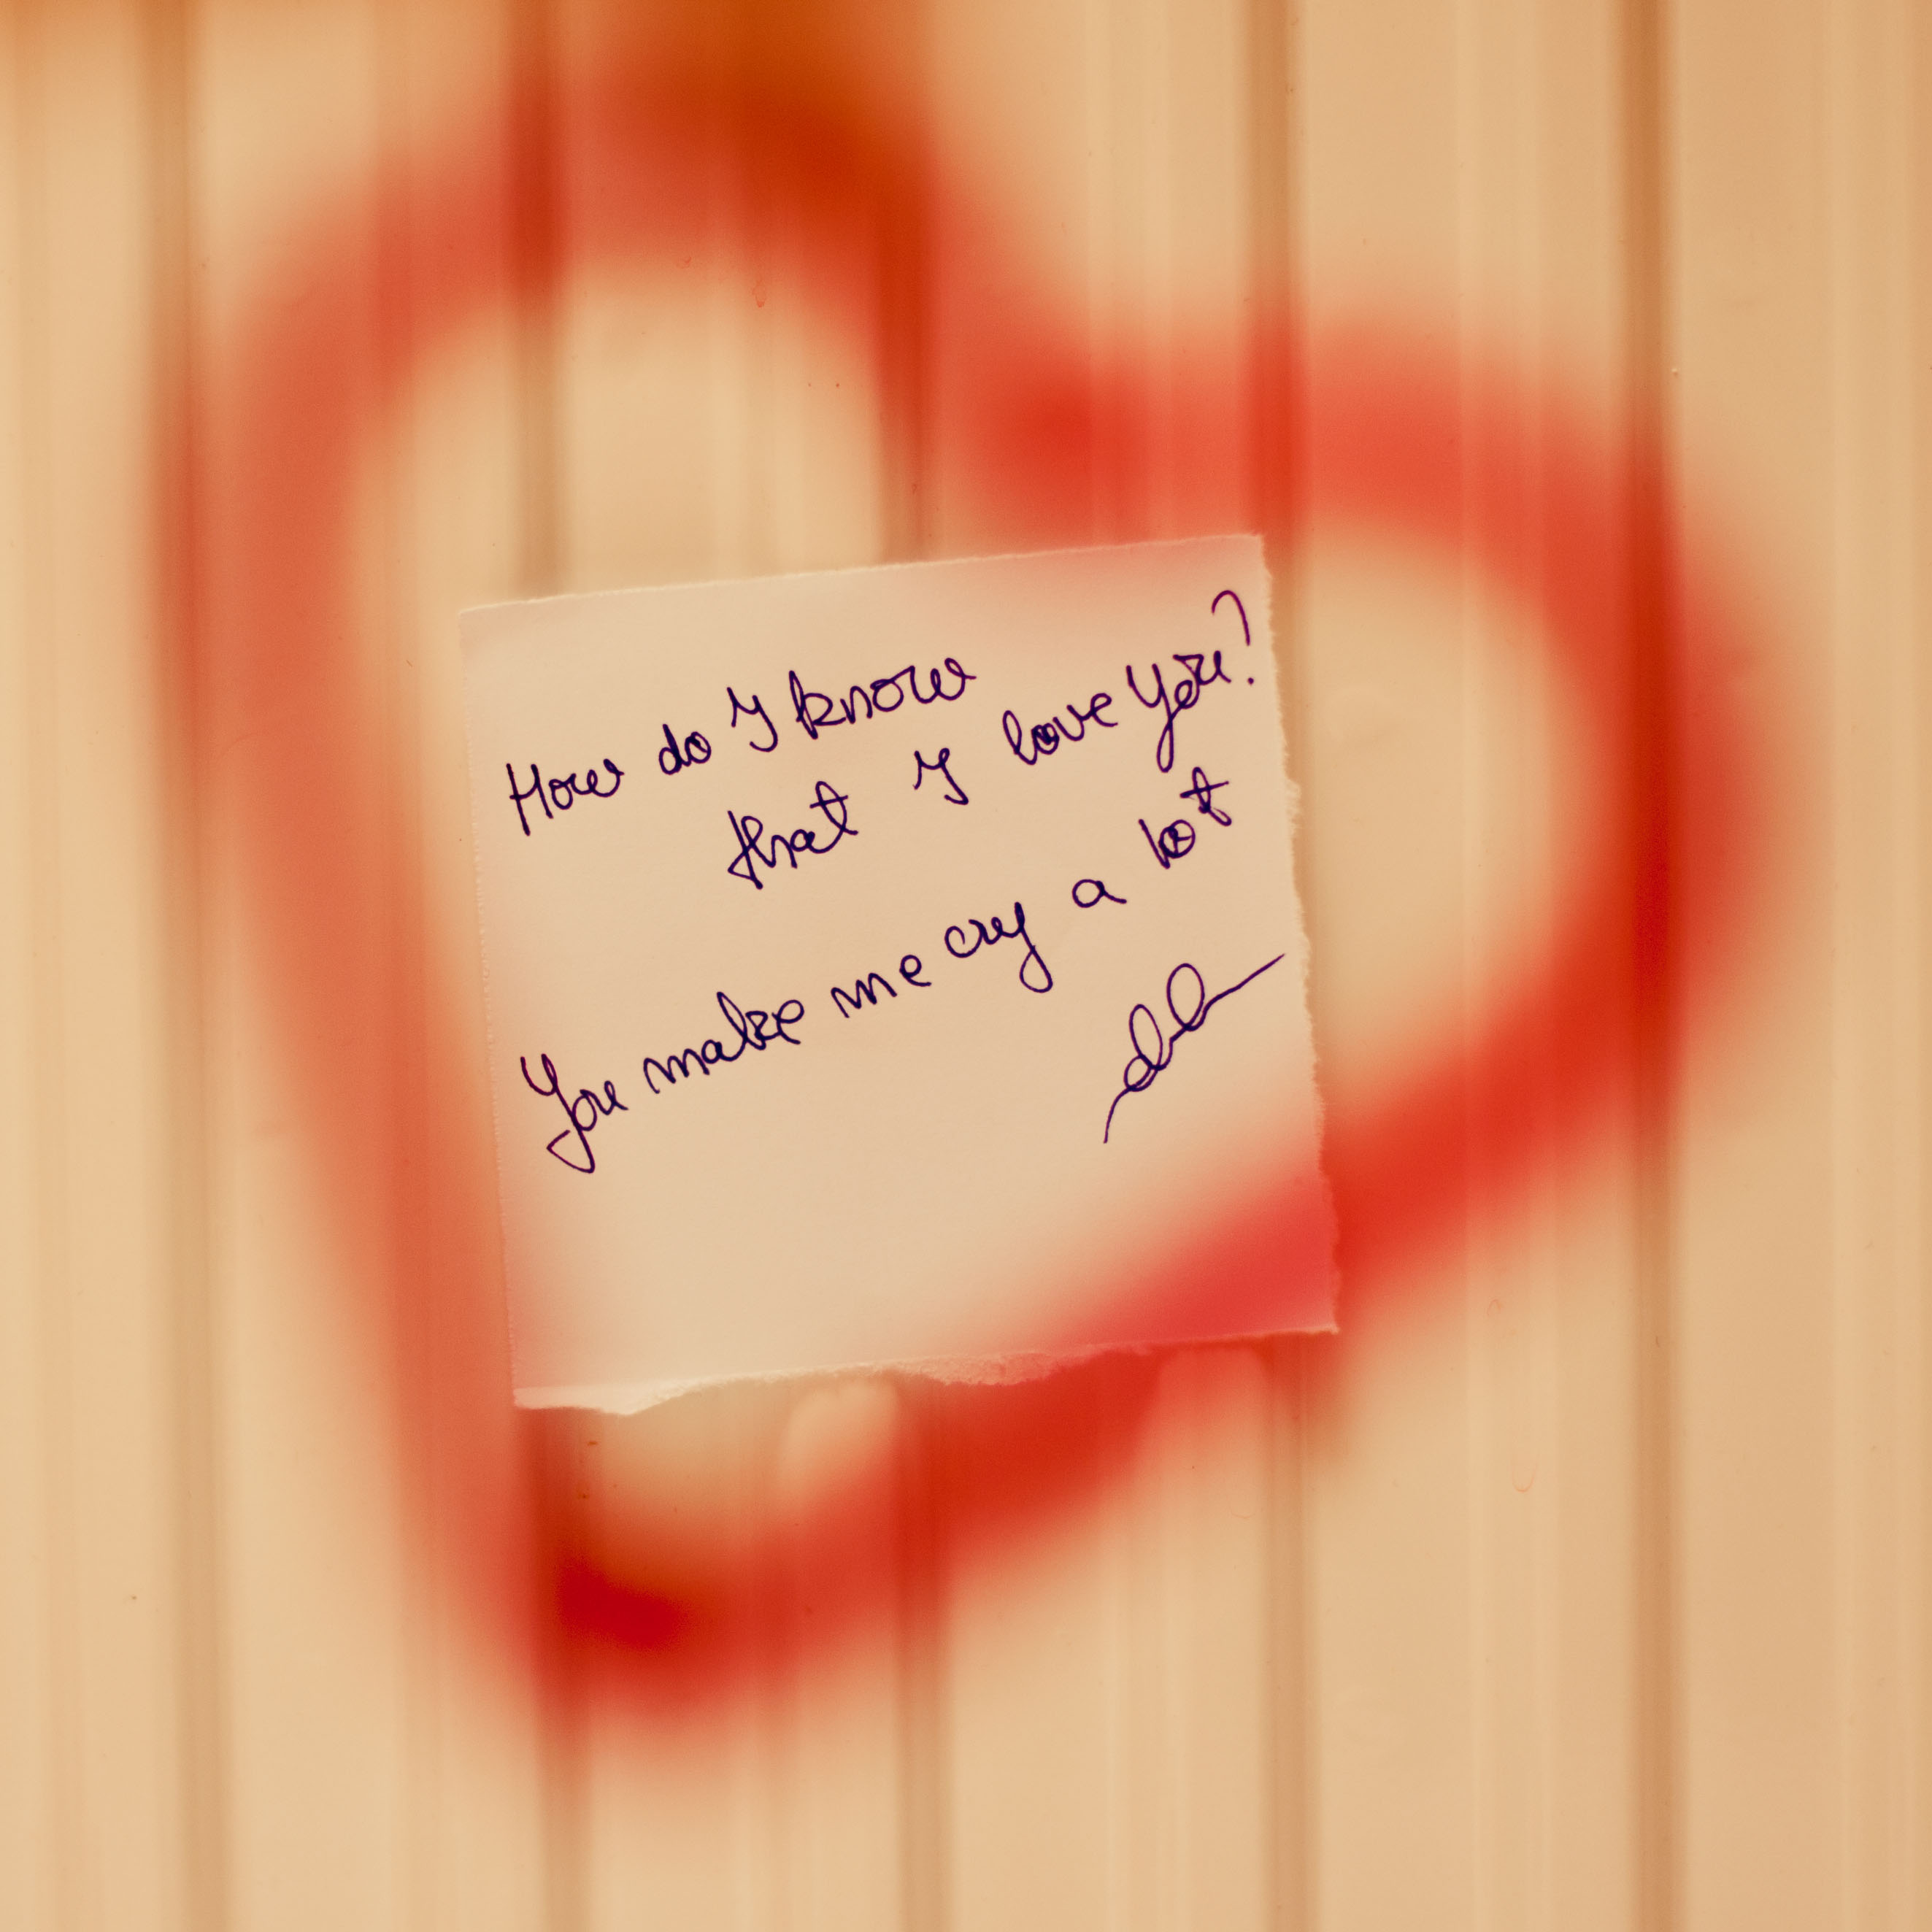 How do I know
that I love you?
You make me cry a lot